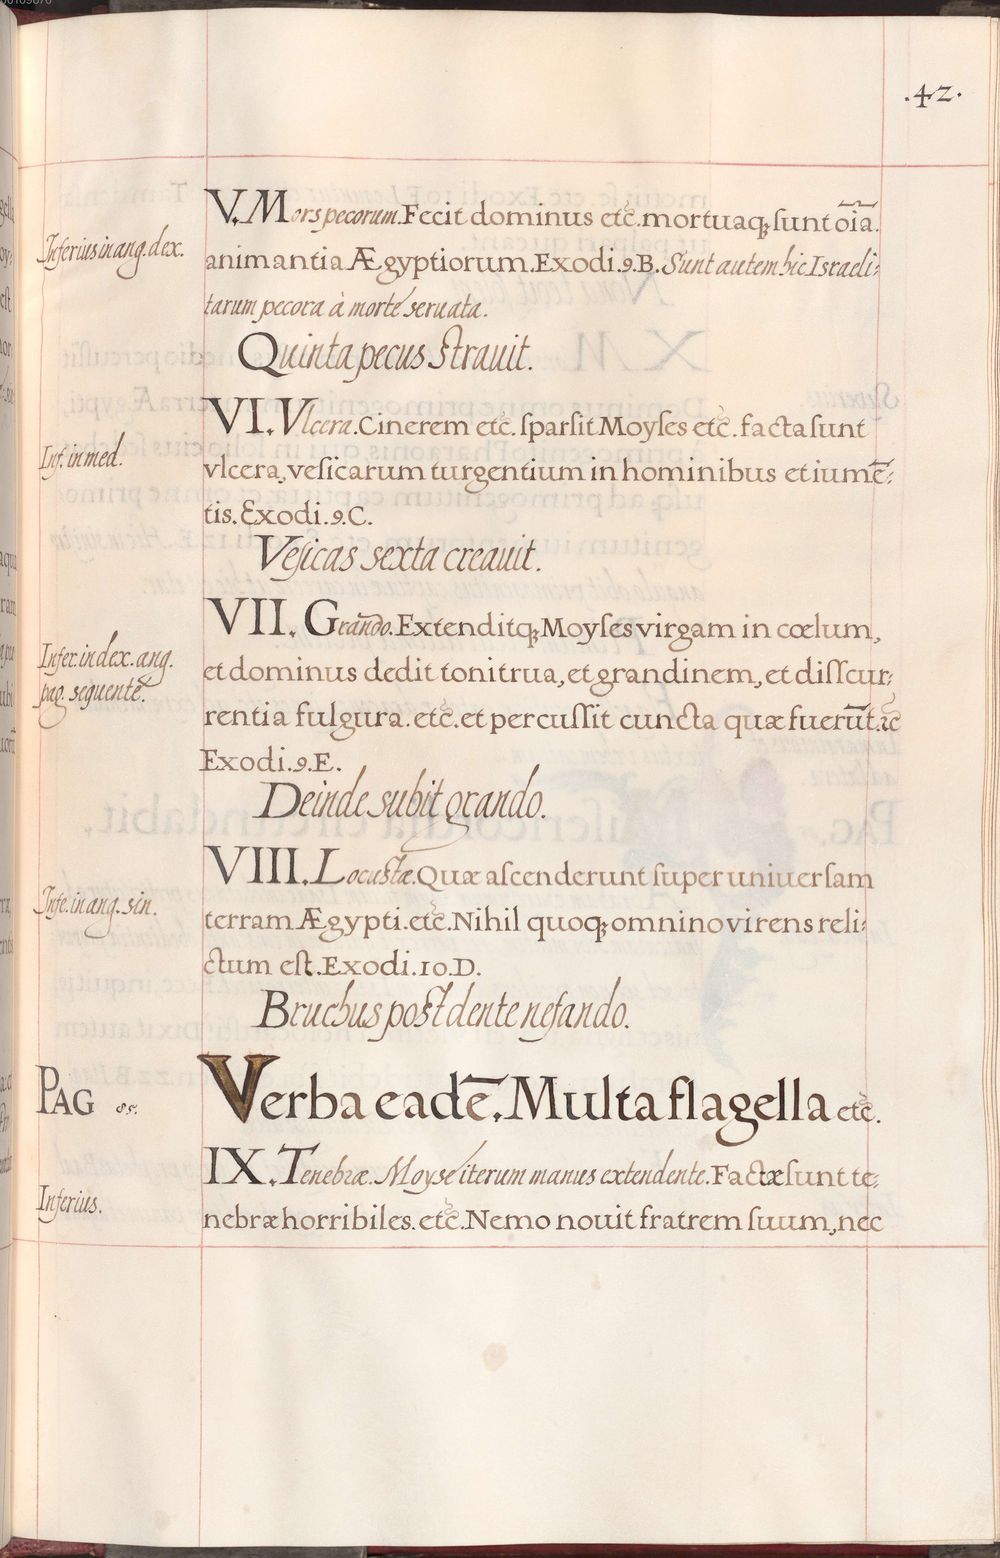 .42.
V. Mors pecorum. Fecit dominus etc̃. mortuaq; sunt oĩa.
Inferius in ang. dex.
animantia Ægyptiorum. Exodi. 9. B. Sunt autem hic Israeli-
tarum pecora à morte seruata.
Quinta pecus strauit.
VI. Vlcera. Cinerem etc̃. sparsit Moyses etc̃. facta sunt
Inf. in med.
vlcera, vesicarum turgentium in hominibus et iumẽ-
tis. Exodi. 9. C.
Vesicas sexta creauit.
VII. Grãdo. Extenditq; Moyses virgam in cœlum,
Infer. in dex. ang.
et dominus dedit tonitrua, et grandinem, et disscur-
pag. sequentẽ.
rentia fulgura. etc̃. et percussit cuncta quæ fuerũt. ⁊c̃
Exodi. 9. E.
Deinde subit grando.
VIII. Locustæ. Quæ ascenderunt super uniuersam
Infe. in ang. sin.
terram Ægypti. etc̃. Nihil quoq; omnino virens reli-
ctum est. Exodi. 10. D.
Bruchus post dente nefando.
PAG 85.
Verba eadẽ. Multa flagella etc̃.
IX. Tenebræ. Moyse iterum manus extendente. Factæ sunt te-
Inferius.
nebræ horribiles. etc̃. Nemo nouit fratrem suum, nec